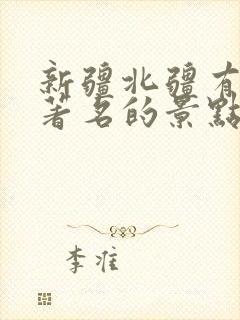 新疆北疆有
著名的景點
李准